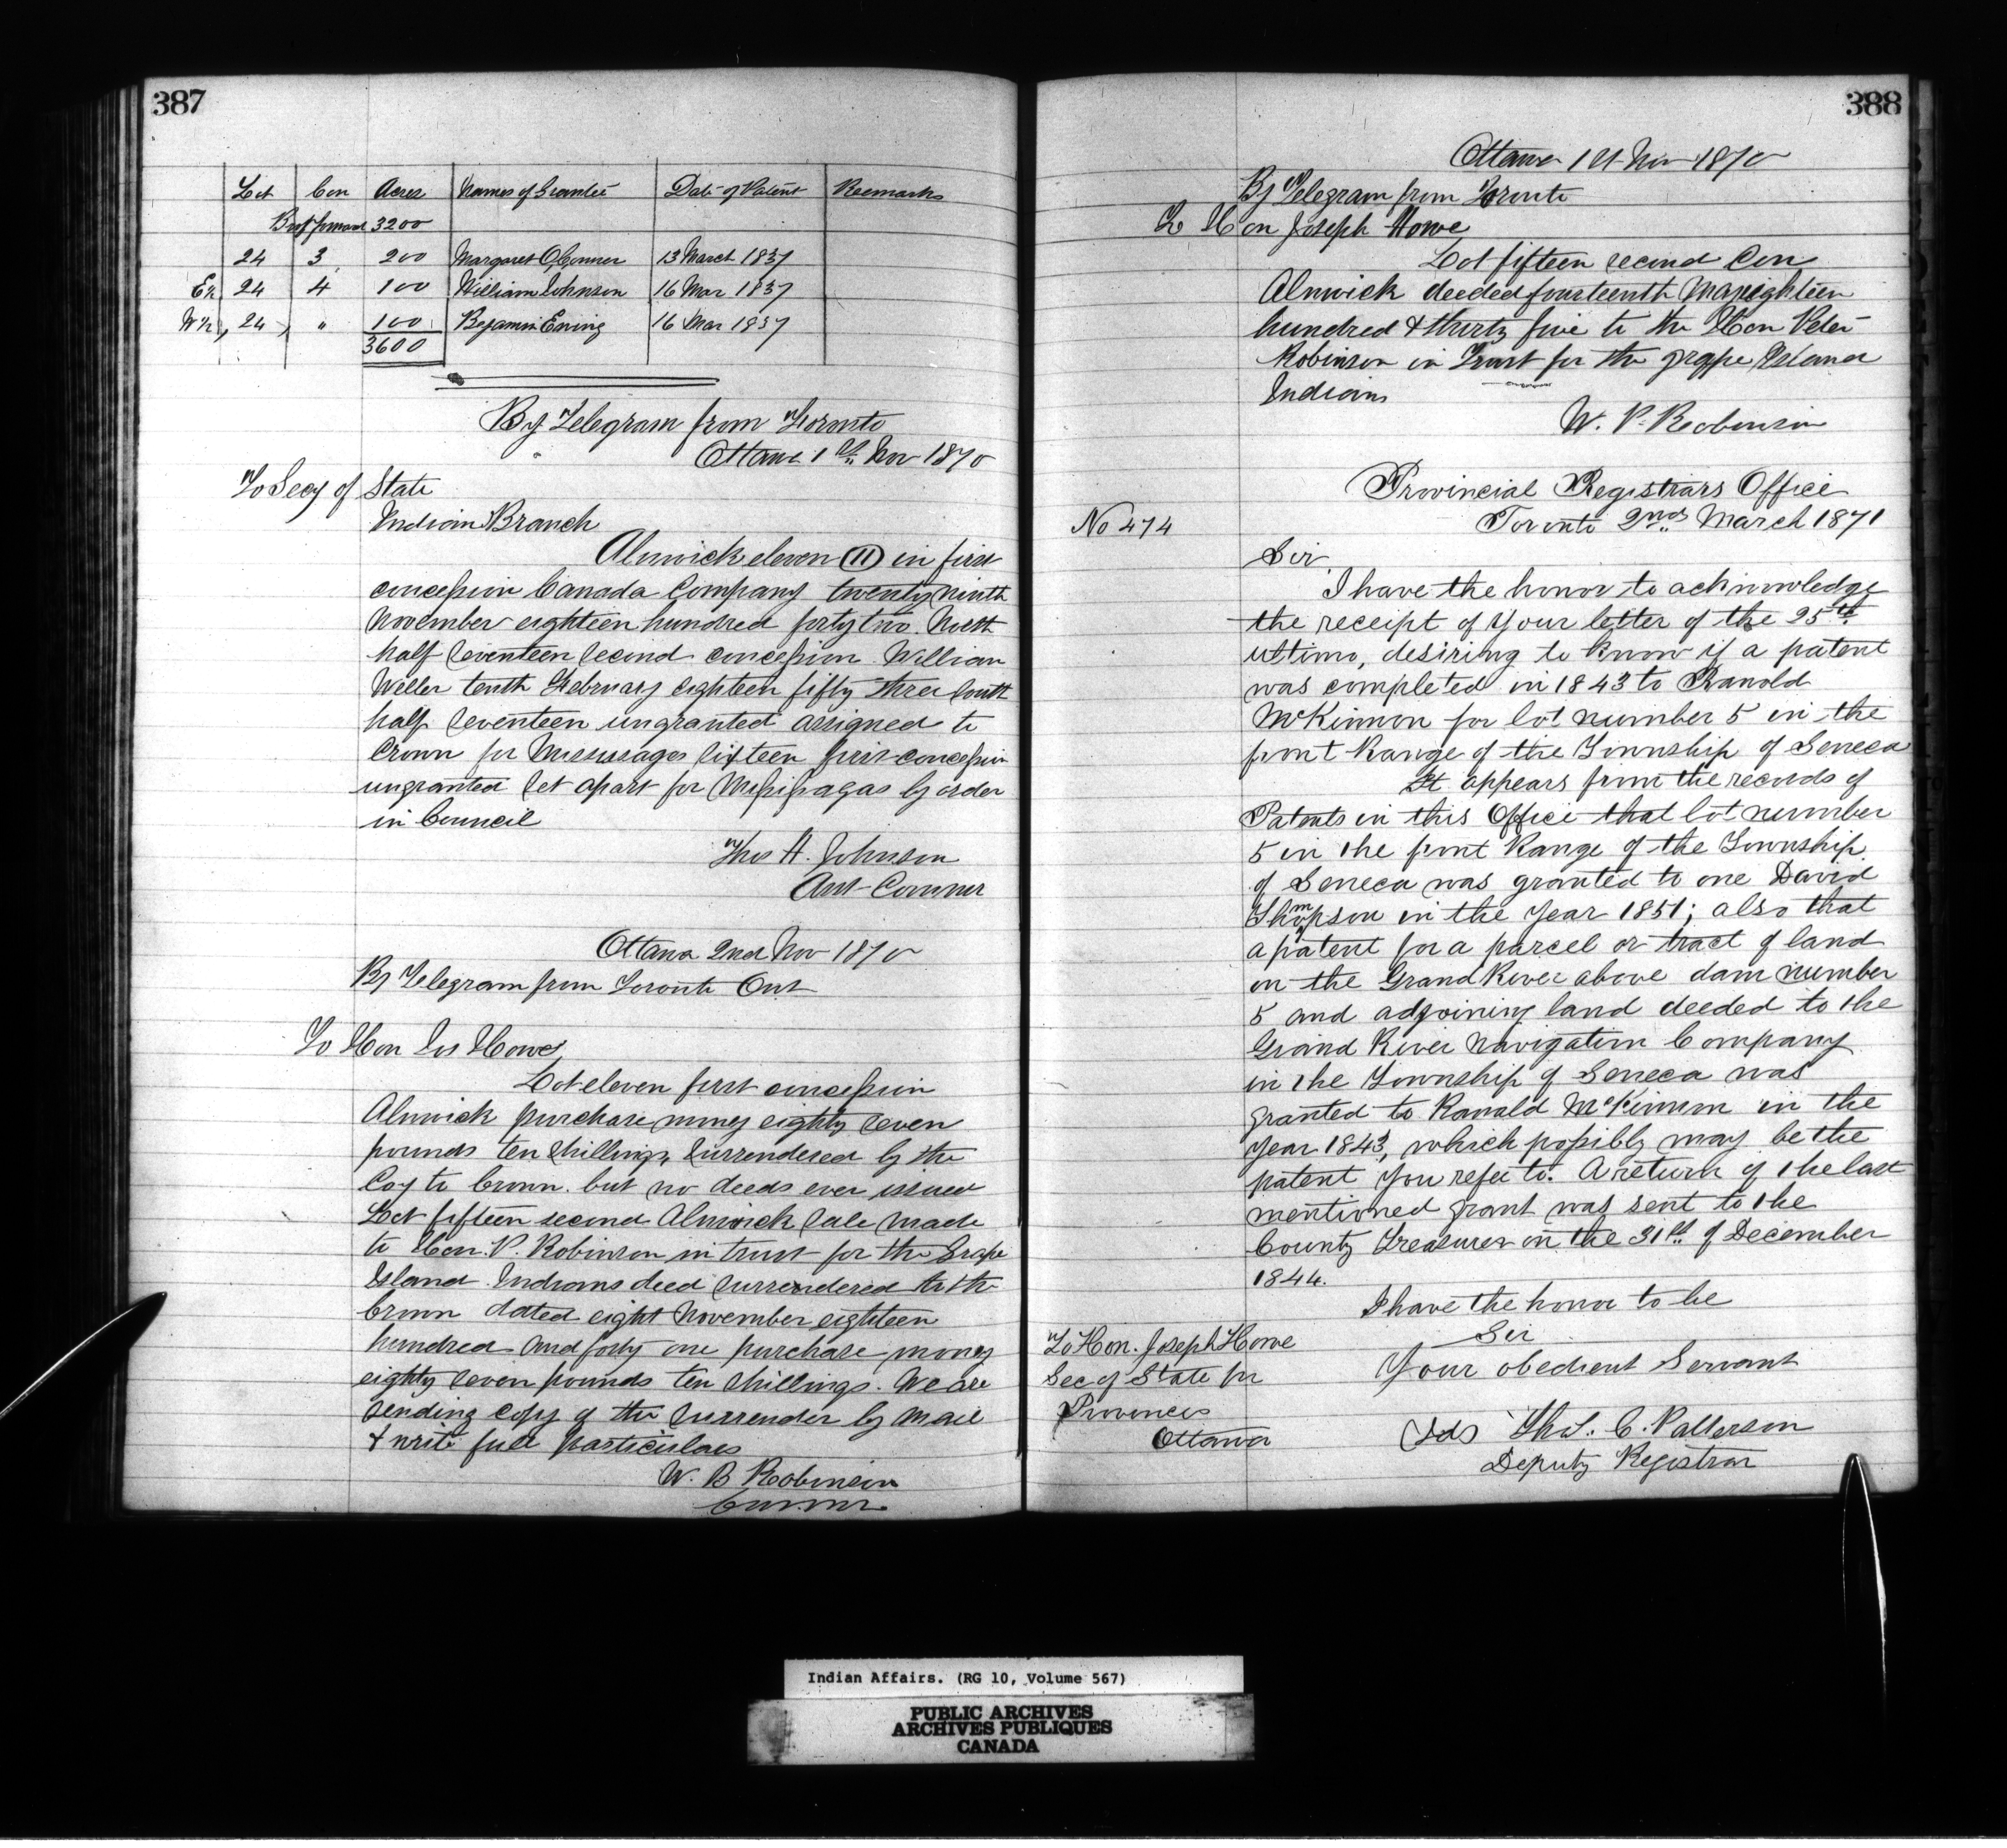 387
Lot Con Acres Names of Grantee Date of Patent Remarks
Brot forward 3200
24 3 200 Margaret O,Connor 13 March 1837
E½ 24 4 100 William Johnson 16 Mar 1837
W½, 24, " 100 Bejamin Ewing 16 Mar 1837
3600
By Telegram from Toronto
Ottawa 1st Nov 1870
To Secy of State
Indian Branch
Alnwick eleven (11) in first
concession Canada Company twenty ninth
November eighteen hundred forty two. North
half seventeen second concession William
Weller tenth February eighteen fifty three South
half seventeen ungranted assigned to
Crown for Missisagas fifteen first concession
ungranted set apart for Mississagas by order
in Council
Thos H. Johnson
Asst Commr
Ottawa 2nd Nov 1870
By Telegram from Toronto Ont
To Hon Jos Howe,
Lot eleven first concession
Alnwick purchase money eighty seven
pounds ten shillings, surrendered by the
Coy to Crown. but no deeds ever issued
Lot fifteen second Alnwick sale made
to Hon. P. Robinson in trust for the Grape
Island Indians deed surrendered to the
Crown dated eight November eighteen
hundred and forty one purchase money
eighty seven pounds ten shillings. We are
sending copy of the surrender by mail
& write full particulars
W. B Robinson
Commr
388
Ottawa 1st Nov 1870
By Telegram from Toronto
To Hon Joseph Howe
Lot fifteen second Con
Alnwick deeded fourteenth May eighteen
hundred & thirty five to the Hon Peter
Robinson in Trust for the grape Island
Indians
W. P. Robinson
Provincial Registrars Office
No 474 Toronto 2nd March 1871
Sir
I have the honor to acknowledge
the receipt of your letter of the 25th
ultimo, desiring to know if a patent
was completed in 1843 to Ranold
McKinnon for lot number 5 in the
front Range of the Township of Seneca
It appears from the records of
Patents in this Office that lot number
5 in the front Range of the Township
of Seneca was granted to one David
Thompson in the year 1851; also that
a patent for a parcel or tract of land
on the Grand River above dam number
5 and adjoining land deeded to the
Grand River Navigation Company
in the Township of Seneca was
granted to Ranald McKinnon in the
year 1843, which possibly may be the
patent you refer to. A return of the last
mentioned grant was sent to the
County Treasurer on the 31st of December
1844.
I have the honor to be
Sir
Your obedient Servant
To Hon. Joseph Howe
Sec of State for
Provinces
Ottawa
(Sd) Thos. C. Patterson
Deputy Registrar
Indian Affairs. (RG 10, Volume 567)
PUBLIC ARCHIVES
ARCHIVES PUBLIQUES
CANADA